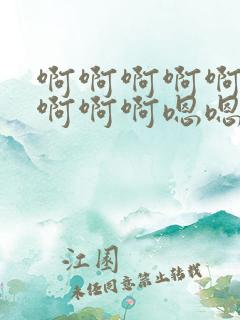 啊啊啊啊啊
啊啊啊嗯嗯
江圆
未经同意禁止转载